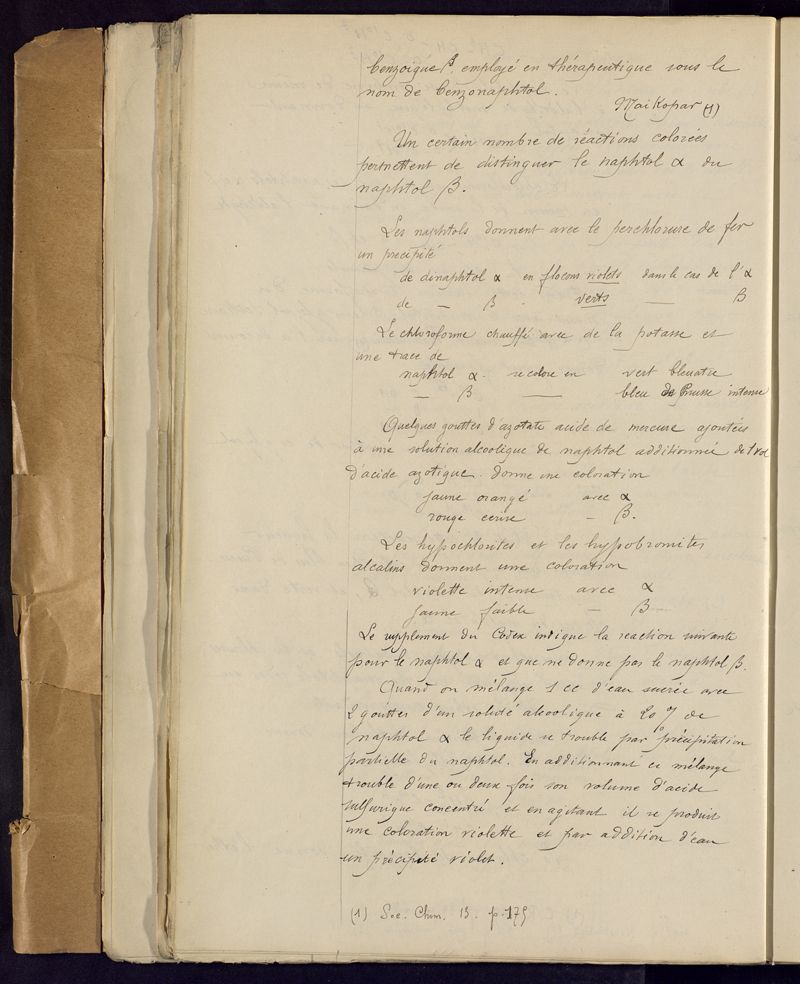 benzoïque β employé en thérapeutique sous le
nom de benzonaphtol.
Maikopar (1)
Un certain nombre de réactions colorées
permettent de distinguer le naphtol α du
naphtol β.
Les naphtols donnent avec le perchlorure de fer
un précipité
de dinaphtol α en flocons violets dans le cas de l'α
de — β - verts — β
Le chloroforme chauffé avec de la potasse et
une trace de
naphtol α. se colore en vert bleuatre
— β — bleu de Prusse intense
Quelques gouttes d'azotate acide de mercure ajoutées
à une solution alcoolique de naphtol additionnée de 1 vol
d'acide azotique. donne une coloration
jaune orangé avec α
rouge cerise — β.
Les hypochlorites et les hypobromites
alcalins donnent une coloration
violette intense avec α
jaune faible — β
Le supplement du Codex indique la reaction suivante
pour le naphtol α et que ne donne pas le naphtol β.
Quand on mélange 1 cc d'eau sucrée avec
2 gouttes d'un soluté alcoolique à 20 % de
naphtol α le liquide se trouble par précipitation
partielle du naphtol. En additionnant ce mélange
trouble d'une ou deux fois son volume d'acide
sulfurique concentré et en agitant il se produit
une coloration violette et par addition d'eau
un précipité violet.
(1) Soc. Chim. 13. p. 175